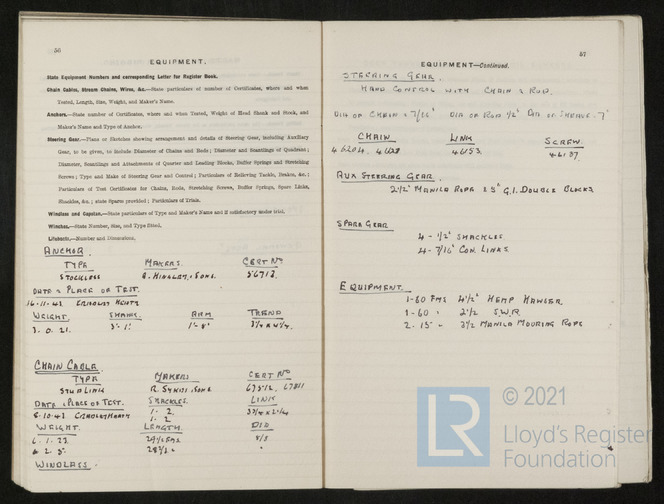 56
EQUIPMENT.
State Equipment Numbers and corresponding Letter for Register Book.
Chain Cables, Stream Chains, Wires, &c.—State particulars of number of Certificates, where and when
Tested, Length, Size, Weight, and Maker's Name.
Anchors.—State number of Certificates, where and when Tested, Weight of Head Shank and Stock, and
Maker's Name and Type of Anchor.
Steering Gear.—Plans or Sketches showing arrangement and details of Steering Gear, including Auxiliary
Gear, to be given, to include Diameter of Chains and Rods; Diameter and Scantlings of Quadrant;
Diameter, Scantlings and Attachments of Quarter and Leading Blocks, Buffer Springs and Stretching
Screws; Type and Make of Steering Gear and Control; Particulars of Relieving Tackle, Brakes, &c.;
Particulars of Test Certificates for Chains, Rods, Stretching Screws, Buffer Springs, Spare Links,
Shackles, &c.; state Spares provided; Particulars of Trials.
Windlass and Capstan.—State particulars of Type and Maker's Name and if satisfactory under trial.
Winches.—State Number, Size, and Type fitted.
Lifeboats.—Number and Dimensions.
ANCHOR.
TYPE MAKERS. CERT No
STOCKLESS & SONS. 56713.
DATE & PLACE OF TEST.
16-11-43. CRADLEY HEATH
WEIGHT. SHANK. ARM TREND
3. 0. 21. 3'-1" 1'-8"
CHAIN CABLE.
TYPE MAKERS CERT No
STUD LINK R. SYKES & SONS
DATE & PLACE OF TEST. SHACKLES. LINK
8-10-43. CRADLEY HEATH 1. 2.
1. 2
WEIGHT. LENGTH. DIA
6. 1. 22.
6. 2. 5.
WINDLASS.
57
EQUIPMENT—Continued.
STEERING GEAR.
HAND CONTROL WITH CHAIN & ROD.
DIA OF CHAIN = 7/16" DIA OF ROD 1/2" DIA OF SHEAVE. 7"
CHAIN LINK SCREW
46153.
AUX STEERING GEAR.
2 1/2" MANILA ROPE & 5" G.I. DOUBLE BLOCKS
SPARE GEAR
4 - 1/2" SHACKLES
4 - 7/16" CON. LINKS
EQUIPMENT.
1-60 FMS 4 1/2" HEMP HAWSER
1-60 " 2 1/2 S.W.R.
2. 15 " 3 1/2 MANILA MOORING ROPE
© 2021
LR
Lloyd's Register
Foundation